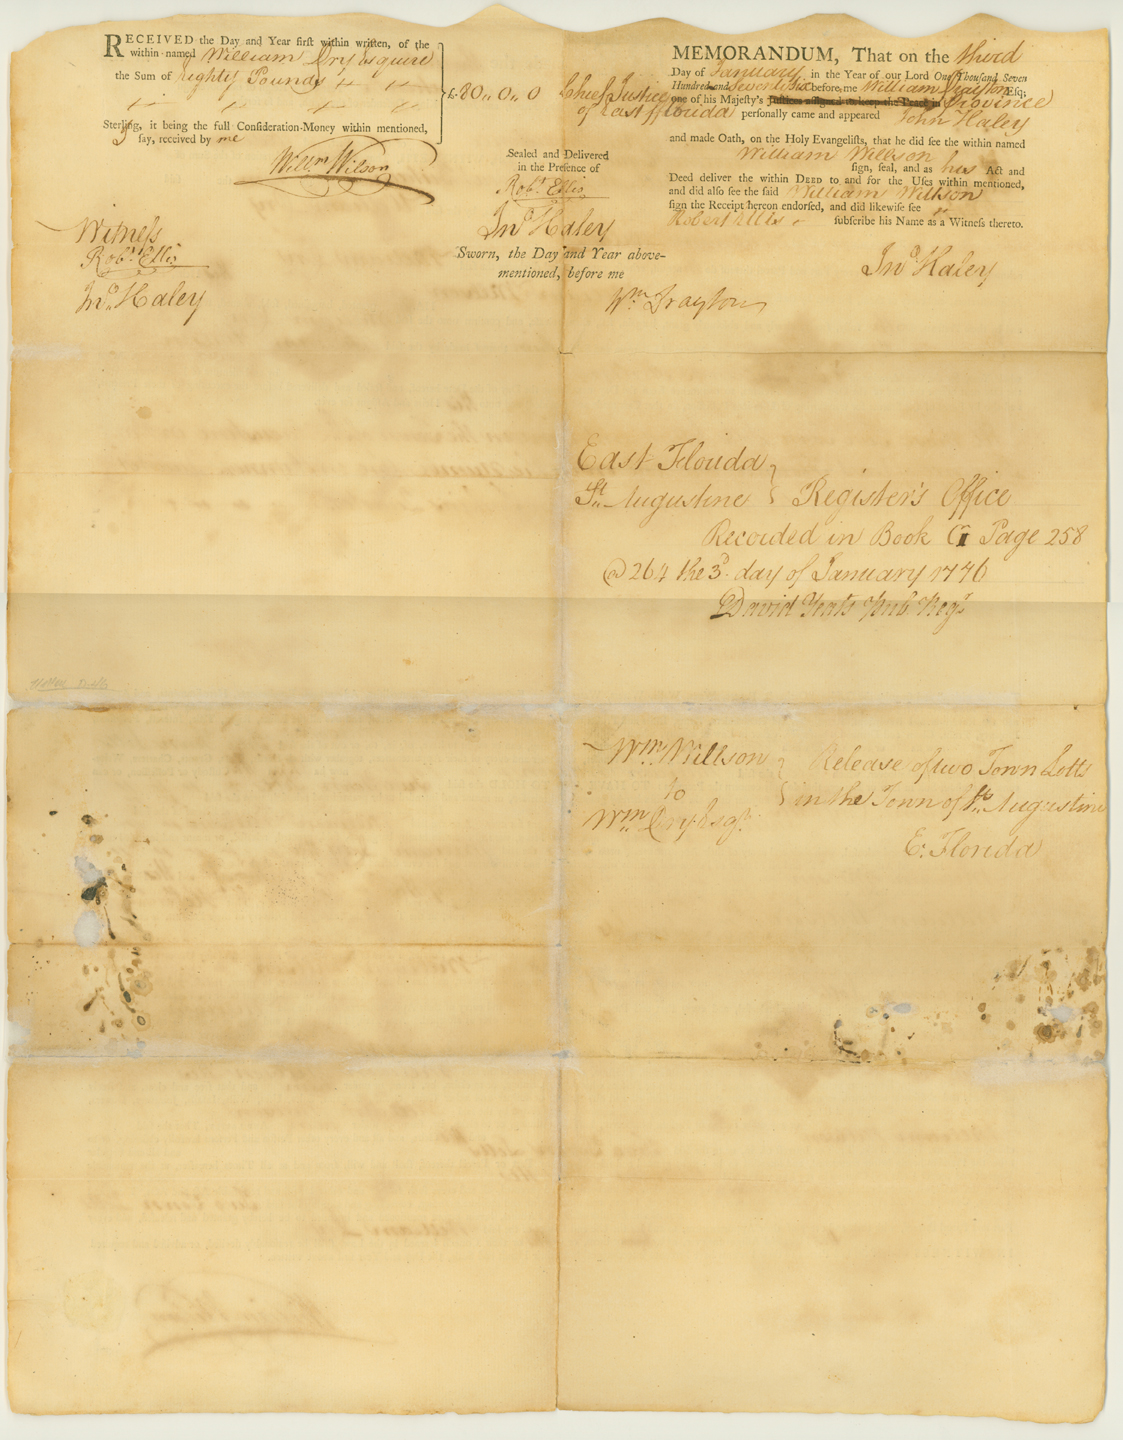 RECEIVED the Day and Year first within written, of the
within named William Dry Esquire
the Sum of Eighty Pounds
£.80,,0,,0
Sterling, it being the full Consideration-Money within mentioned,
say, received by me
Willm. Wilson
Witness
Robt. Ellis
Jno. Haley
Sealed and Delivered
in the Presence of
Robt. Ellis
Jno. Haley
Sworn, the Day and Year above-
mentioned, before me
Wm. Drayton
MEMORANDUM, That on the third
Day of January in the Year of our Lord One Thousand Seven
Hundred and Seventy Six before me William Drayton Esq;
Chief Justice one of his Majesty's Justices assigned to keep the Peace in Province
of East Florida personally came and appeared John Haley
and made Oath, on the Holy Evangelists, that he did see the within named
William Willson sign, seal, and as his Act and
Deed deliver the within DEED to and for the Uses within mentioned,
and did also see the said William Willson
sign the Receipt hereon endorsed, and did likewise see
Robert Ellis subscribe his Name as a Witness thereto.
Jno. Haley
East Florida
St. Augustine } Register's Office
Recorded in Book G Page 258
@ 264 the 3d. day of January 1776
David Yeats Pub. Regr.
Wm. Willson } Release of two Town Lotts
to } in the Town of St. Augustine
Wm. Dry Esqr. E. Florida